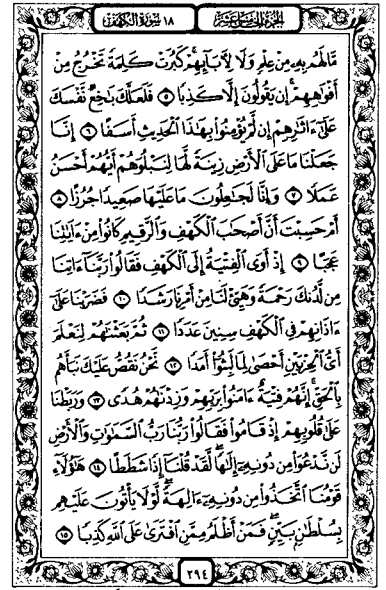 الجزء الخامس عشر
١٨ سورة الكهف
مَّا لَهُم بِهِۦ مِنْ عِلْمٍ وَلَا لِأَبَآئِهِمْ ۚ كَبُرَتْ كَلِمَةً تَخْرُجُ مِنْ
أَفْوَٰهِهِمْ ۚ إِن يَقُولُونَ إِلَّا كَذِبًا ٥ فَلَعَلَّكَ بَٰخِعٌ نَّفْسَكَ
عَلَىٰٓ ءَاثَٰرِهِمْ إِن لَّمْ يُؤْمِنُوا۟ بِهَٰذَا ٱلْحَدِيثِ أَسَفًا ٦ إِنَّا
جَعَلْنَا مَا عَلَى ٱلْأَرْضِ زِينَةً لَّهَا لِنَبْلُوَهُمْ أَيُّهُمْ أَحْسَنُ
عَمَلًا ٧ وَإِنَّا لَجَٰعِلُونَ مَا عَلَيْهَا صَعِيدًا جُرُزًا ٨
أَمْ حَسِبْتَ أَنَّ أَصْحَٰبَ ٱلْكَهْفِ وَٱلرَّقِيمِ كَانُوا۟ مِنْ ءَايَٰتِنَا
عَجَبًا ٩ إِذْ أَوَى ٱلْفِتْيَةُ إِلَى ٱلْكَهْفِ فَقَالُوا۟ رَبَّنَآ ءَاتِنَا
مِن لَّدُنكَ رَحْمَةً وَهَيِّئْ لَنَا مِنْ أَمْرِنَا رَشَدًا ١٠ فَضَرَبْنَا عَلَىٰٓ
ءَاذَانِهِمْ فِى ٱلْكَهْفِ سِنِينَ عَدَدًا ١١ ثُمَّ بَعَثْنَٰهُمْ لِنَعْلَمَ
أَىُّ ٱلْحِزْبَيْنِ أَحْصَىٰ لِمَا لَبِثُوٓا۟ أَمَدًا ١٢ نَّحْنُ نَقُصُّ عَلَيْكَ نَبَأَهُم
بِٱلْحَقِّ ۚ إِنَّهُمْ فِتْيَةٌ ءَامَنُوا۟ بِرَبِّهِمْ وَزِدْنَٰهُمْ هُدًى ١٣ وَرَبَطْنَا
عَلَىٰ قُلُوبِهِمْ إِذْ قَامُوا۟ فَقَالُوا۟ رَبُّنَا رَبُّ ٱلسَّمَٰوَٰتِ وَٱلْأَرْضِ
لَن نَّدْعُوَا۟ مِن دُونِهِۦٓ إِلَٰهًا ۖ لَّقَدْ قُلْنَآ إِذًا شَطَطًا ١٤ هَٰٓؤُلَآءِ
قَوْمُنَا ٱتَّخَذُوا۟ مِن دُونِهِۦٓ ءَالِهَةً ۖ لَّوْلَا يَأْتُونَ عَلَيْهِم
بِسُلْطَٰنٍۭ بَيِّنٍ ۖ فَمَنْ أَظْلَمُ مِمَّنِ ٱفْتَرَىٰ عَلَى ٱللَّهِ كَذِبًا ١٥
٢٩٤